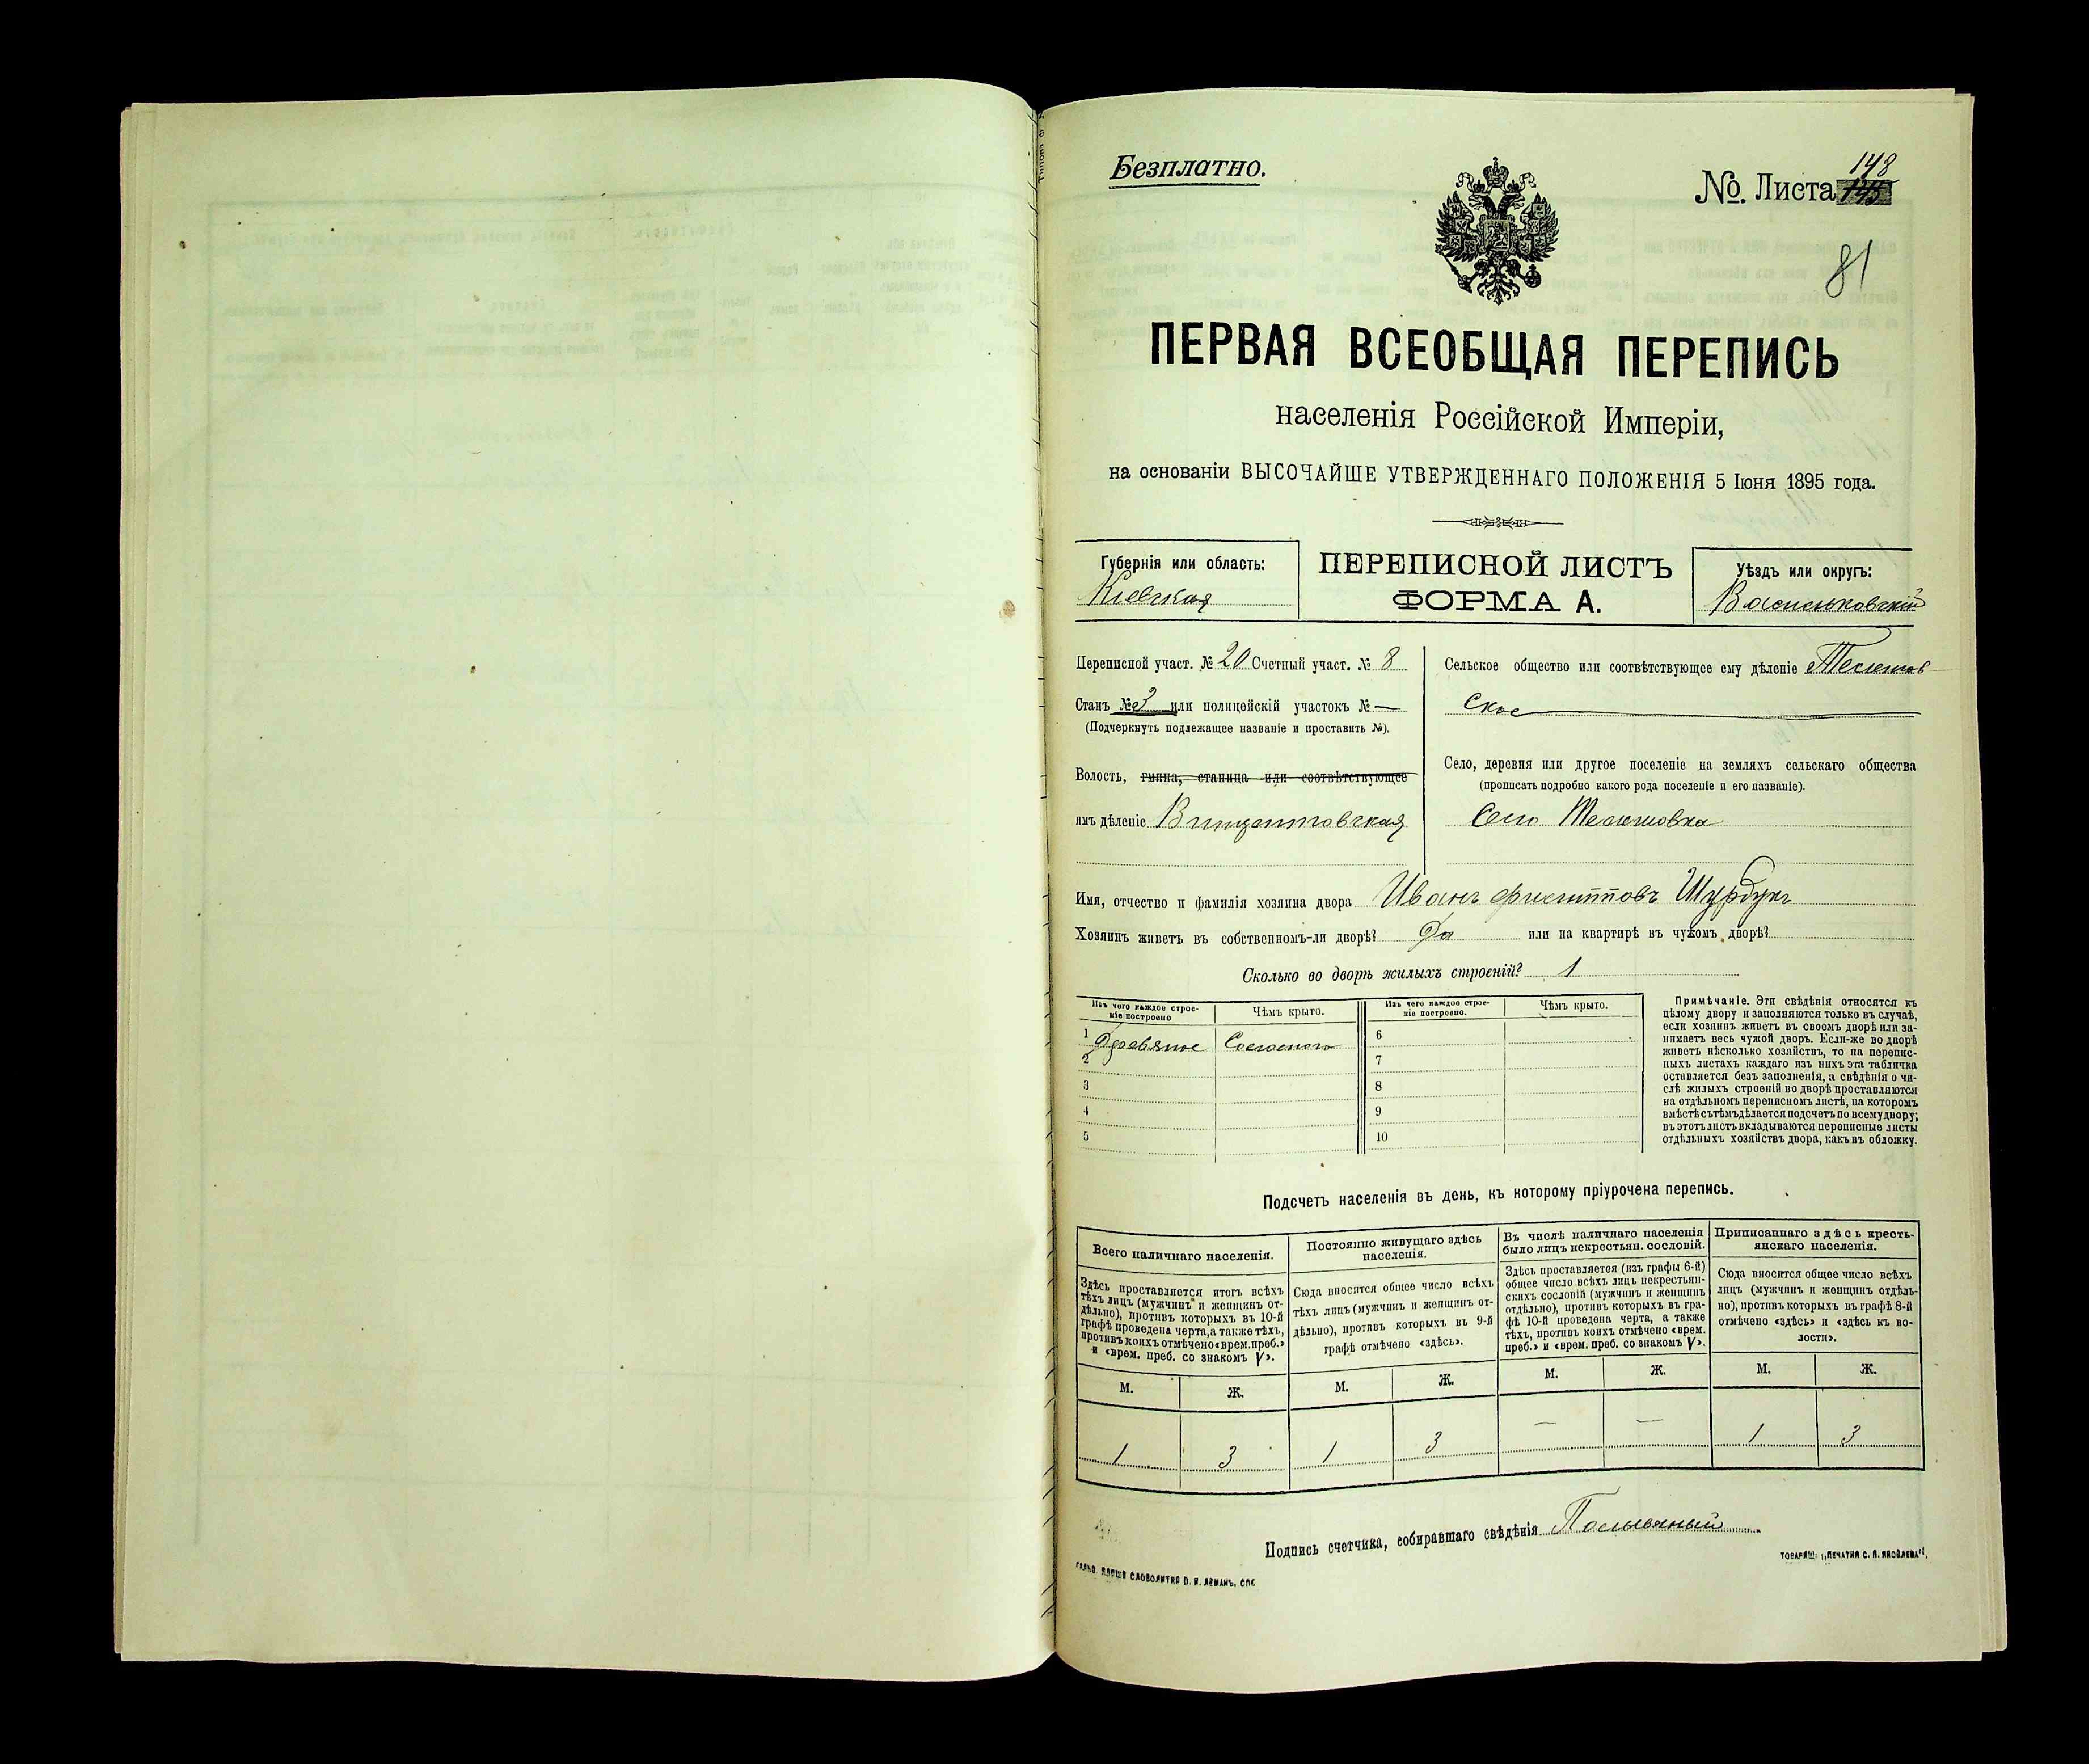 Безплатно.
№. Листа 148
81
ПЕРВАЯ ВСЕОБЩАЯ ПЕРЕПИСЬ
населенія Россійской Имперіи,
на основаніи ВЫСОЧАЙШЕ УТВЕРЖДЕННАГО ПОЛОЖЕНІЯ 5 Іюня 1895 года.
Губернія или область:
Кіевская
ПЕРЕПИСНОЙ ЛИСТЪ
ФОРМА А.
Уѣздъ или округъ:
Васильковскій
Переписной участ. № 20 Счетный участ. № 8
Станъ № 3 или полицейскій участокъ № —
(Подчеркнуть подлежащее названіе и проставить №).
Волость, гмина, станица или соотвѣтствующее
имъ дѣленіе Винцентовская
Сельское общество или соотвѣтствующее ему дѣленіе Телешов
ское
Село, деревня или другое поселеніе на земляхъ сельскаго общества
(прописать подробно какого рода поселеніе и его названіе).
Село Телешовка
Имя, отчество и фамилія хозяина двора Иванъ Филипповъ Шурдукъ
Хозяинъ живетъ въ собственномъ-ли дворѣ? Да или на квартирѣ въ чужомъ дворѣ?
Сколько во дворѣ жилыхъ строеній? 1
Изъ чего каждое строеніе построено
Чѣмъ крыто.
Изъ чего каждое строеніе построено.
Чѣмъ крыто.
1 Деревяное Соломою 6
2 7
3 8
4 9
5 10
Примѣчаніе. Эти свѣдѣнія относятся къ
цѣлому двору и заполняются только въ случаѣ,
если хозяинъ живетъ въ своемъ дворѣ или за-
нимаетъ весь чужой дворъ. Если-же во дворѣ
живетъ нѣсколько хозяйствъ, то на перепис-
ныхъ листахъ каждаго изъ нихъ эта табличка
оставляется безъ заполненія, а свѣдѣнія о чи-
слѣ жилыхъ строеній во дворѣ проставляются
на отдѣльномъ переписномъ листѣ, на которомъ
вмѣстѣ съ тѣмъ дѣлается подсчетъ по всему двору;
въ этотъ листъ вкладываются переписные листы
отдѣльныхъ хозяйствъ двора, какъ въ обложку.
Подсчетъ населенія въ день, къ которому пріурочена перепись.
Всего наличнаго населенія.
Здѣсь проставляется итогъ всѣхъ
тѣхъ лицъ (мужчинъ и женщинъ от-
дѣльно), противъ которыхъ въ 10-й
графѣ проведена черта, а также тѣхъ,
противъ коихъ отмѣчено «врем. преб.»
и «врем. преб. со знакомъ V».
М. Ж.
1 3
Постоянно живущаго здѣсь
населенія.
Сюда вносится общее число всѣхъ
тѣхъ лицъ (мужчинъ и женщинъ от-
дѣльно), противъ которыхъ въ 9-й
графѣ отмѣчено «здѣсь».
М. Ж.
1 3
Въ числѣ наличнаго населенія
было лицъ некрестьян. сословій.
Здѣсь проставляется (изъ графы 6-й)
общее число всѣхъ лицъ некрестьян-
скихъ сословій (мужчинъ и женщинъ
отдѣльно), противъ которыхъ въ гра-
фѣ 10-й проведена черта, а также
тѣхъ, противъ коихъ отмѣчено «врем.
преб.» и «врем. преб. со знакомъ V».
М. Ж.
— —
Приписаннаго здѣсь кресть-
янскаго населенія.
Сюда вносится общее число всѣхъ
лицъ (мужчинъ и женщинъ отдѣль-
но), противъ которыхъ въ графѣ 8-й
отмѣчено «здѣсь» и «здѣсь къ во-
лости».
М. Ж.
1 3
Подпись счетчика, собиравшаго свѣдѣнія
СЛОВОЛИТНЯ О. И. ЛЕМАНЪ, СПБ
ТОВАРИЩ. „ПЕЧАТНЯ С. П. ЯКОВЛЕВА“.